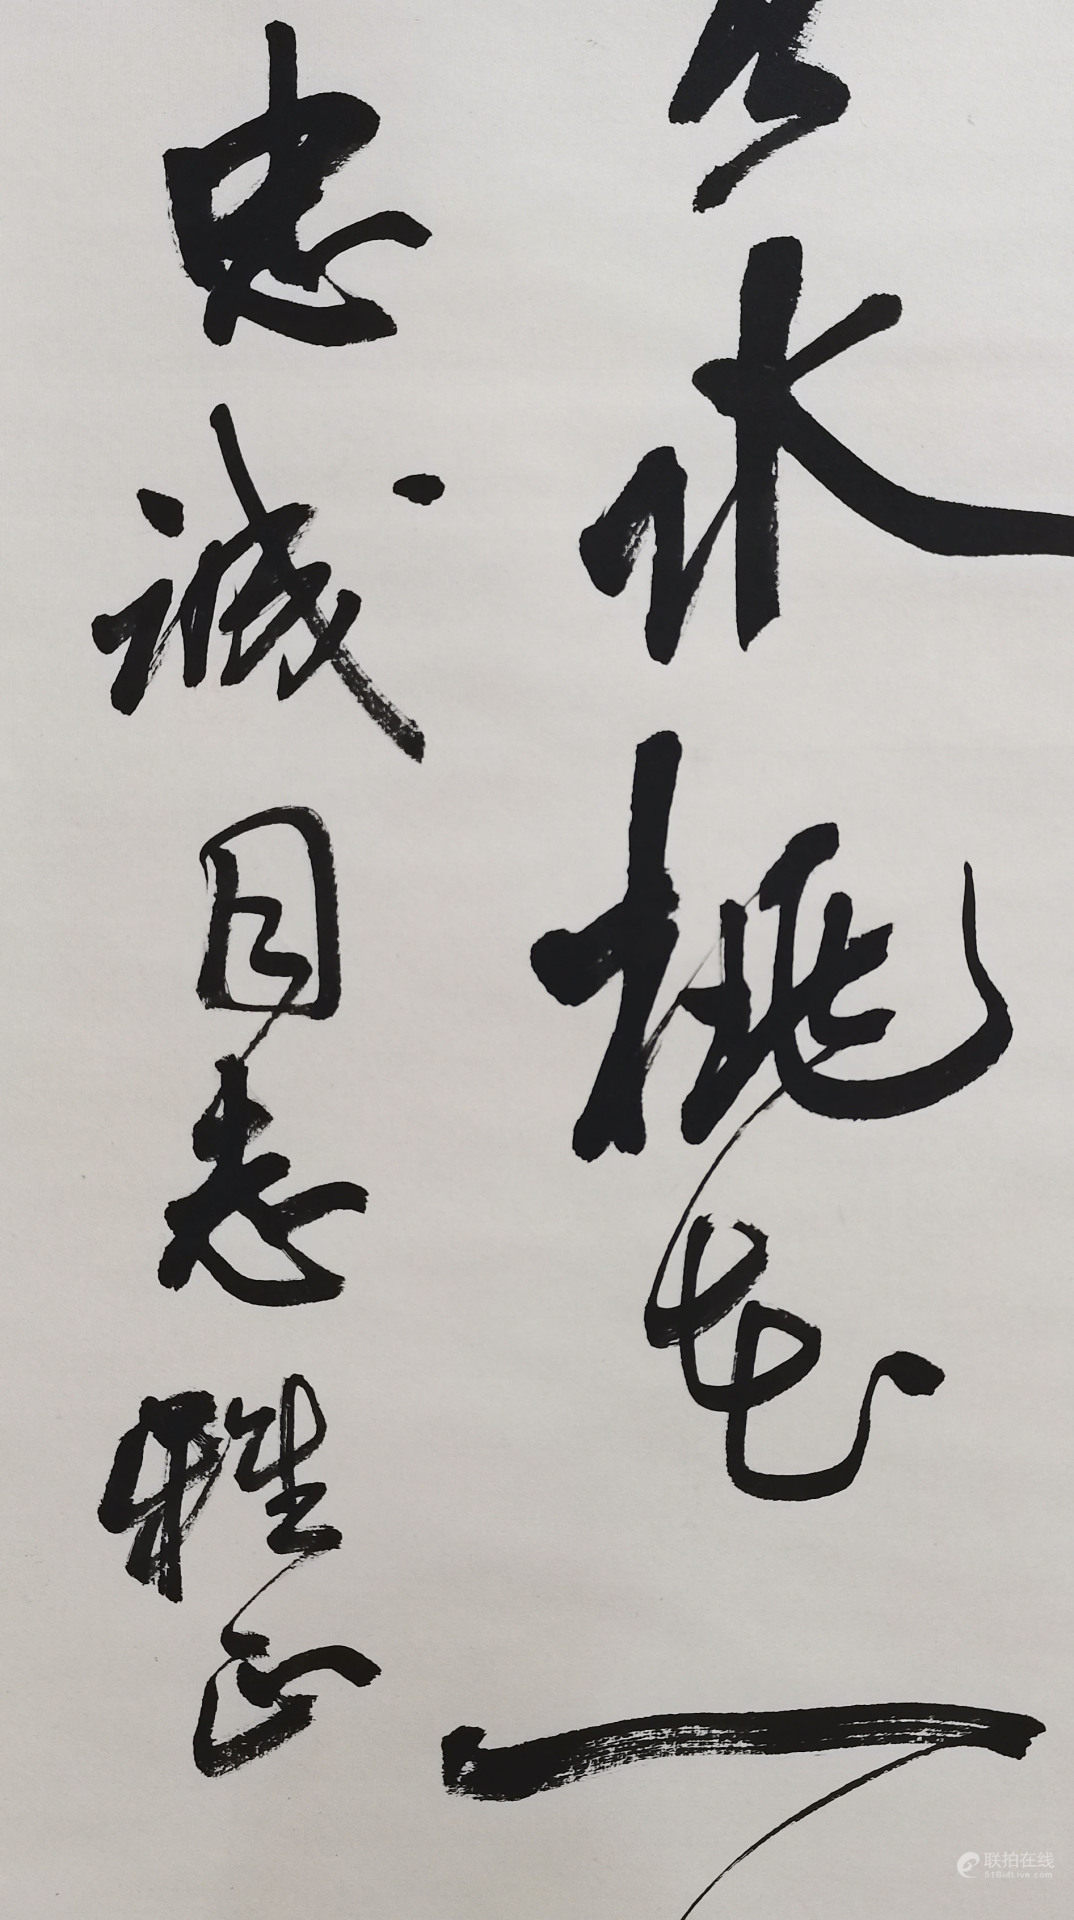 水桃花一
忠诚同志雅正
联拍在线
51BidLive.com